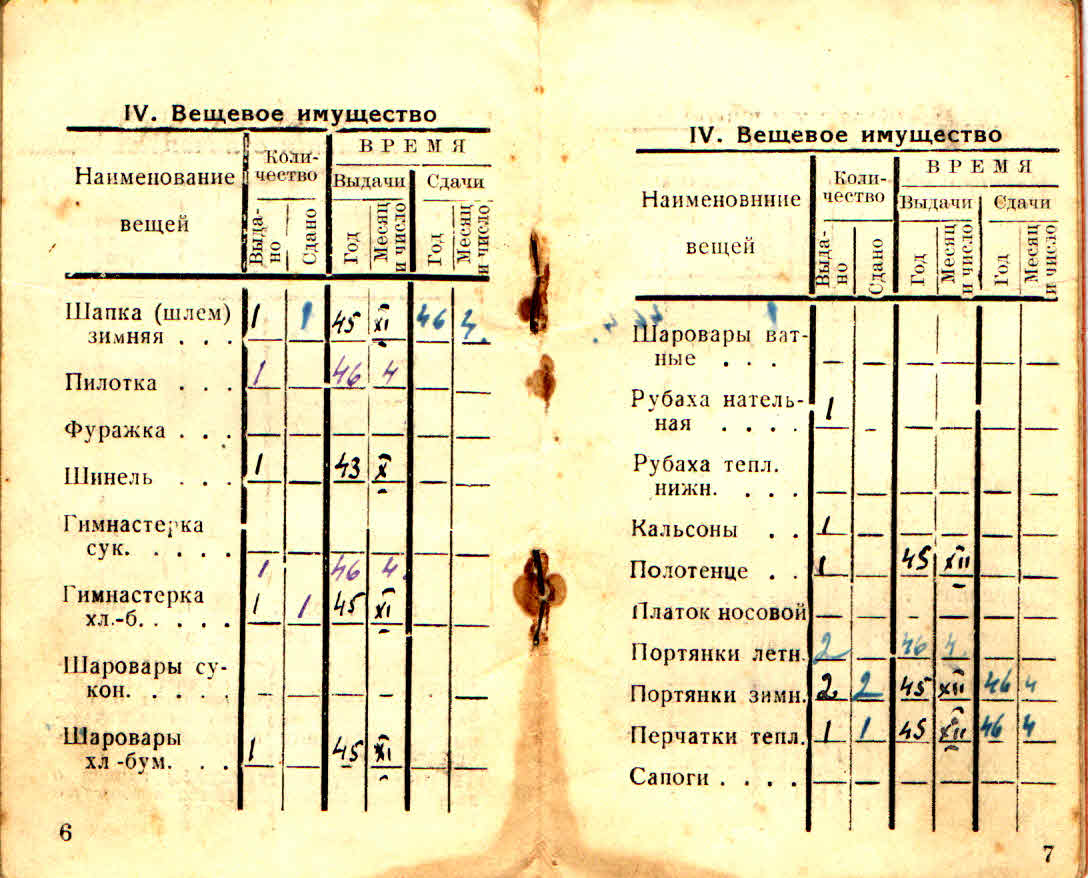 IV. Вещевое имущество
Наименование вещей
Коли-
чество
ВРЕМЯ
Выдачи Сдачи
Выда-
но
Сдано
Год
Месяц
и число
Год
Месяц
и число
Шапка (шлем)
зимняя . . . 1 1 45 XI 46 4.
Пилотка . . . 1 — 46 4 — —
Фуражка . . . — — — — — —
Шинель . . . 1 — 43 X — —
Гимнастерка
сук. . . . . — — — — — —
1 46 4.
Гимнастерка
хл.-б. . . . . 1 1 45 XI — —
Шаровары су-
кон. . . . . — — — — —
Шаровары
хл-бум. . . 1 — 45 XI — —
6
IV. Вещевое имущество
Наименовнние
вещей
Коли-
чество
ВРЕМЯ
Выдачи Сдачи
Выда-
но
Сдано
Год
Месяц
и число
Год
Месяц
и число
Шаровары ват-
ные . . . — — — — — —
Рубаха натель-
ная . . . . 1 - — — — —
Рубаха тепл.
нижн. . . . — — — — — —
Кальсоны . . 1 — — — — —
Полотенце . . 1 — 45 XII
Платок носовой — — - — — —
Портянки летн. 2 — 46 4. — —
Портянки зимн. 2 2 45 XII 46 4
Перчатки тепл. 1 1 45 XII 46 4
Сапоги . . . . — — — — — —
7